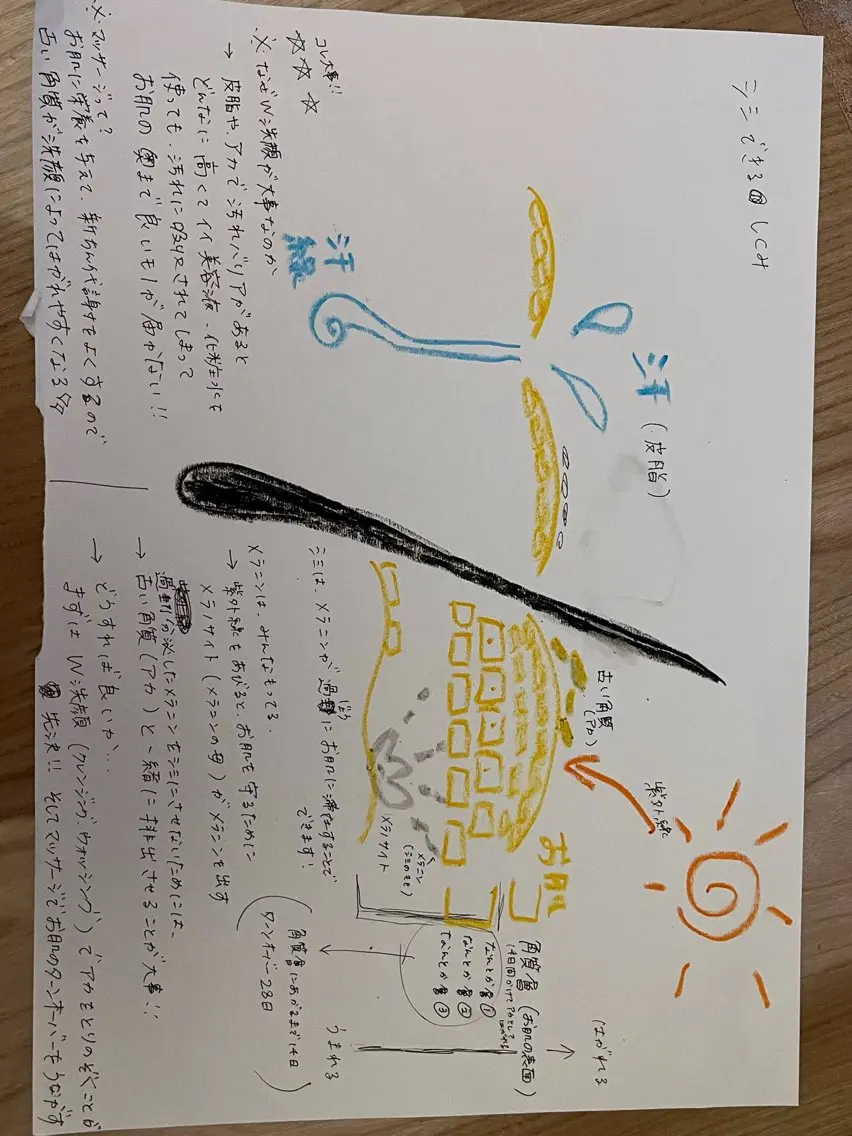 シミできるしくみ
汗(皮脂)
汗
線
コレ大事!!
☆☆☆
※なぜW洗顔が大事なのか
→ 皮脂や、アカで汚れバリアがあると
どんなに高くてイイ美容液、化粧水にも
使っても、汚れに吸収されてしまって
お肌の奥まで良いモノが届かない!!
※マッサージって?
お肌に栄養を与えて、新ちん代謝もよくするので
古い角質が洗顔によってはがれやすくなる
紫外線
古い角質
(アカ)
お肌
メラノサイト
メラニン
(シミのもと)
はがれる
角質層(お肌の表面)
14日間かけてアカとして
はがれる
なんとか層①
なんとか層②
なんとか層③
うまれる
角質層にあがるまで14日
ターンオーバー28日
シミは、メラニンが過剰にお肌に滞在することで
じょう
できます!
メラニンは、みんなもってる。
→ 紫外線をあびると、お肌を守るために
メラノサイト(メラニンの母)がメラニンを出す
過剰分泌したメラニンをシミにさせないためには、
→ 古い角質(アカ)と一緒に排出させることが大事!!
→ どうすれば良いか…
まずはW洗顔(クレンジング、ウォッシング)でアカをとりのぞくことが
先決!! そしてマッサージでお肌のターンオーバーをうながす